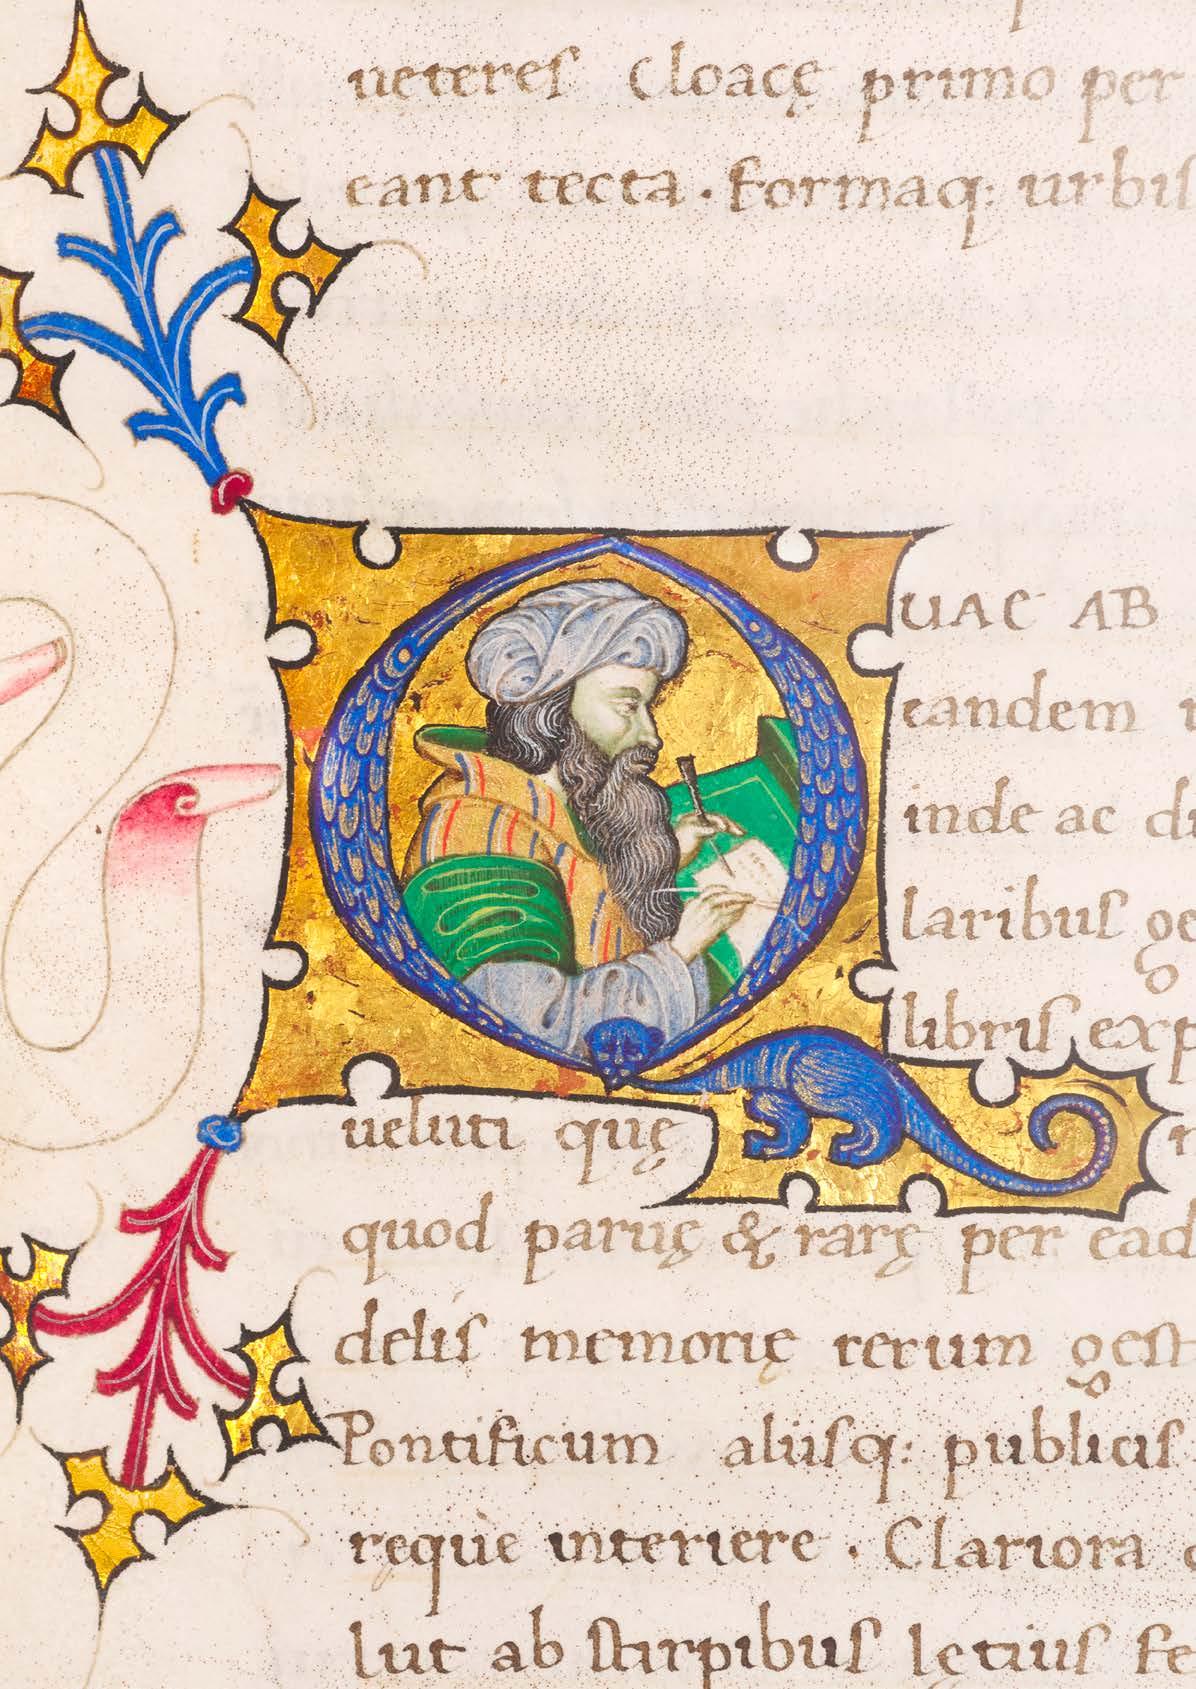 ueteres Cloacę primo per
eant tecta. Formaq: urbis
QUAE AB
eandem
inde ac
laribus
libris exp
ueluti quę
quod paruę & rarę per ead
delis memorię rerum gest
Pontificum aliisq: publicis
ręque interiere. Clariora
lut ab stirpibus lętius fe